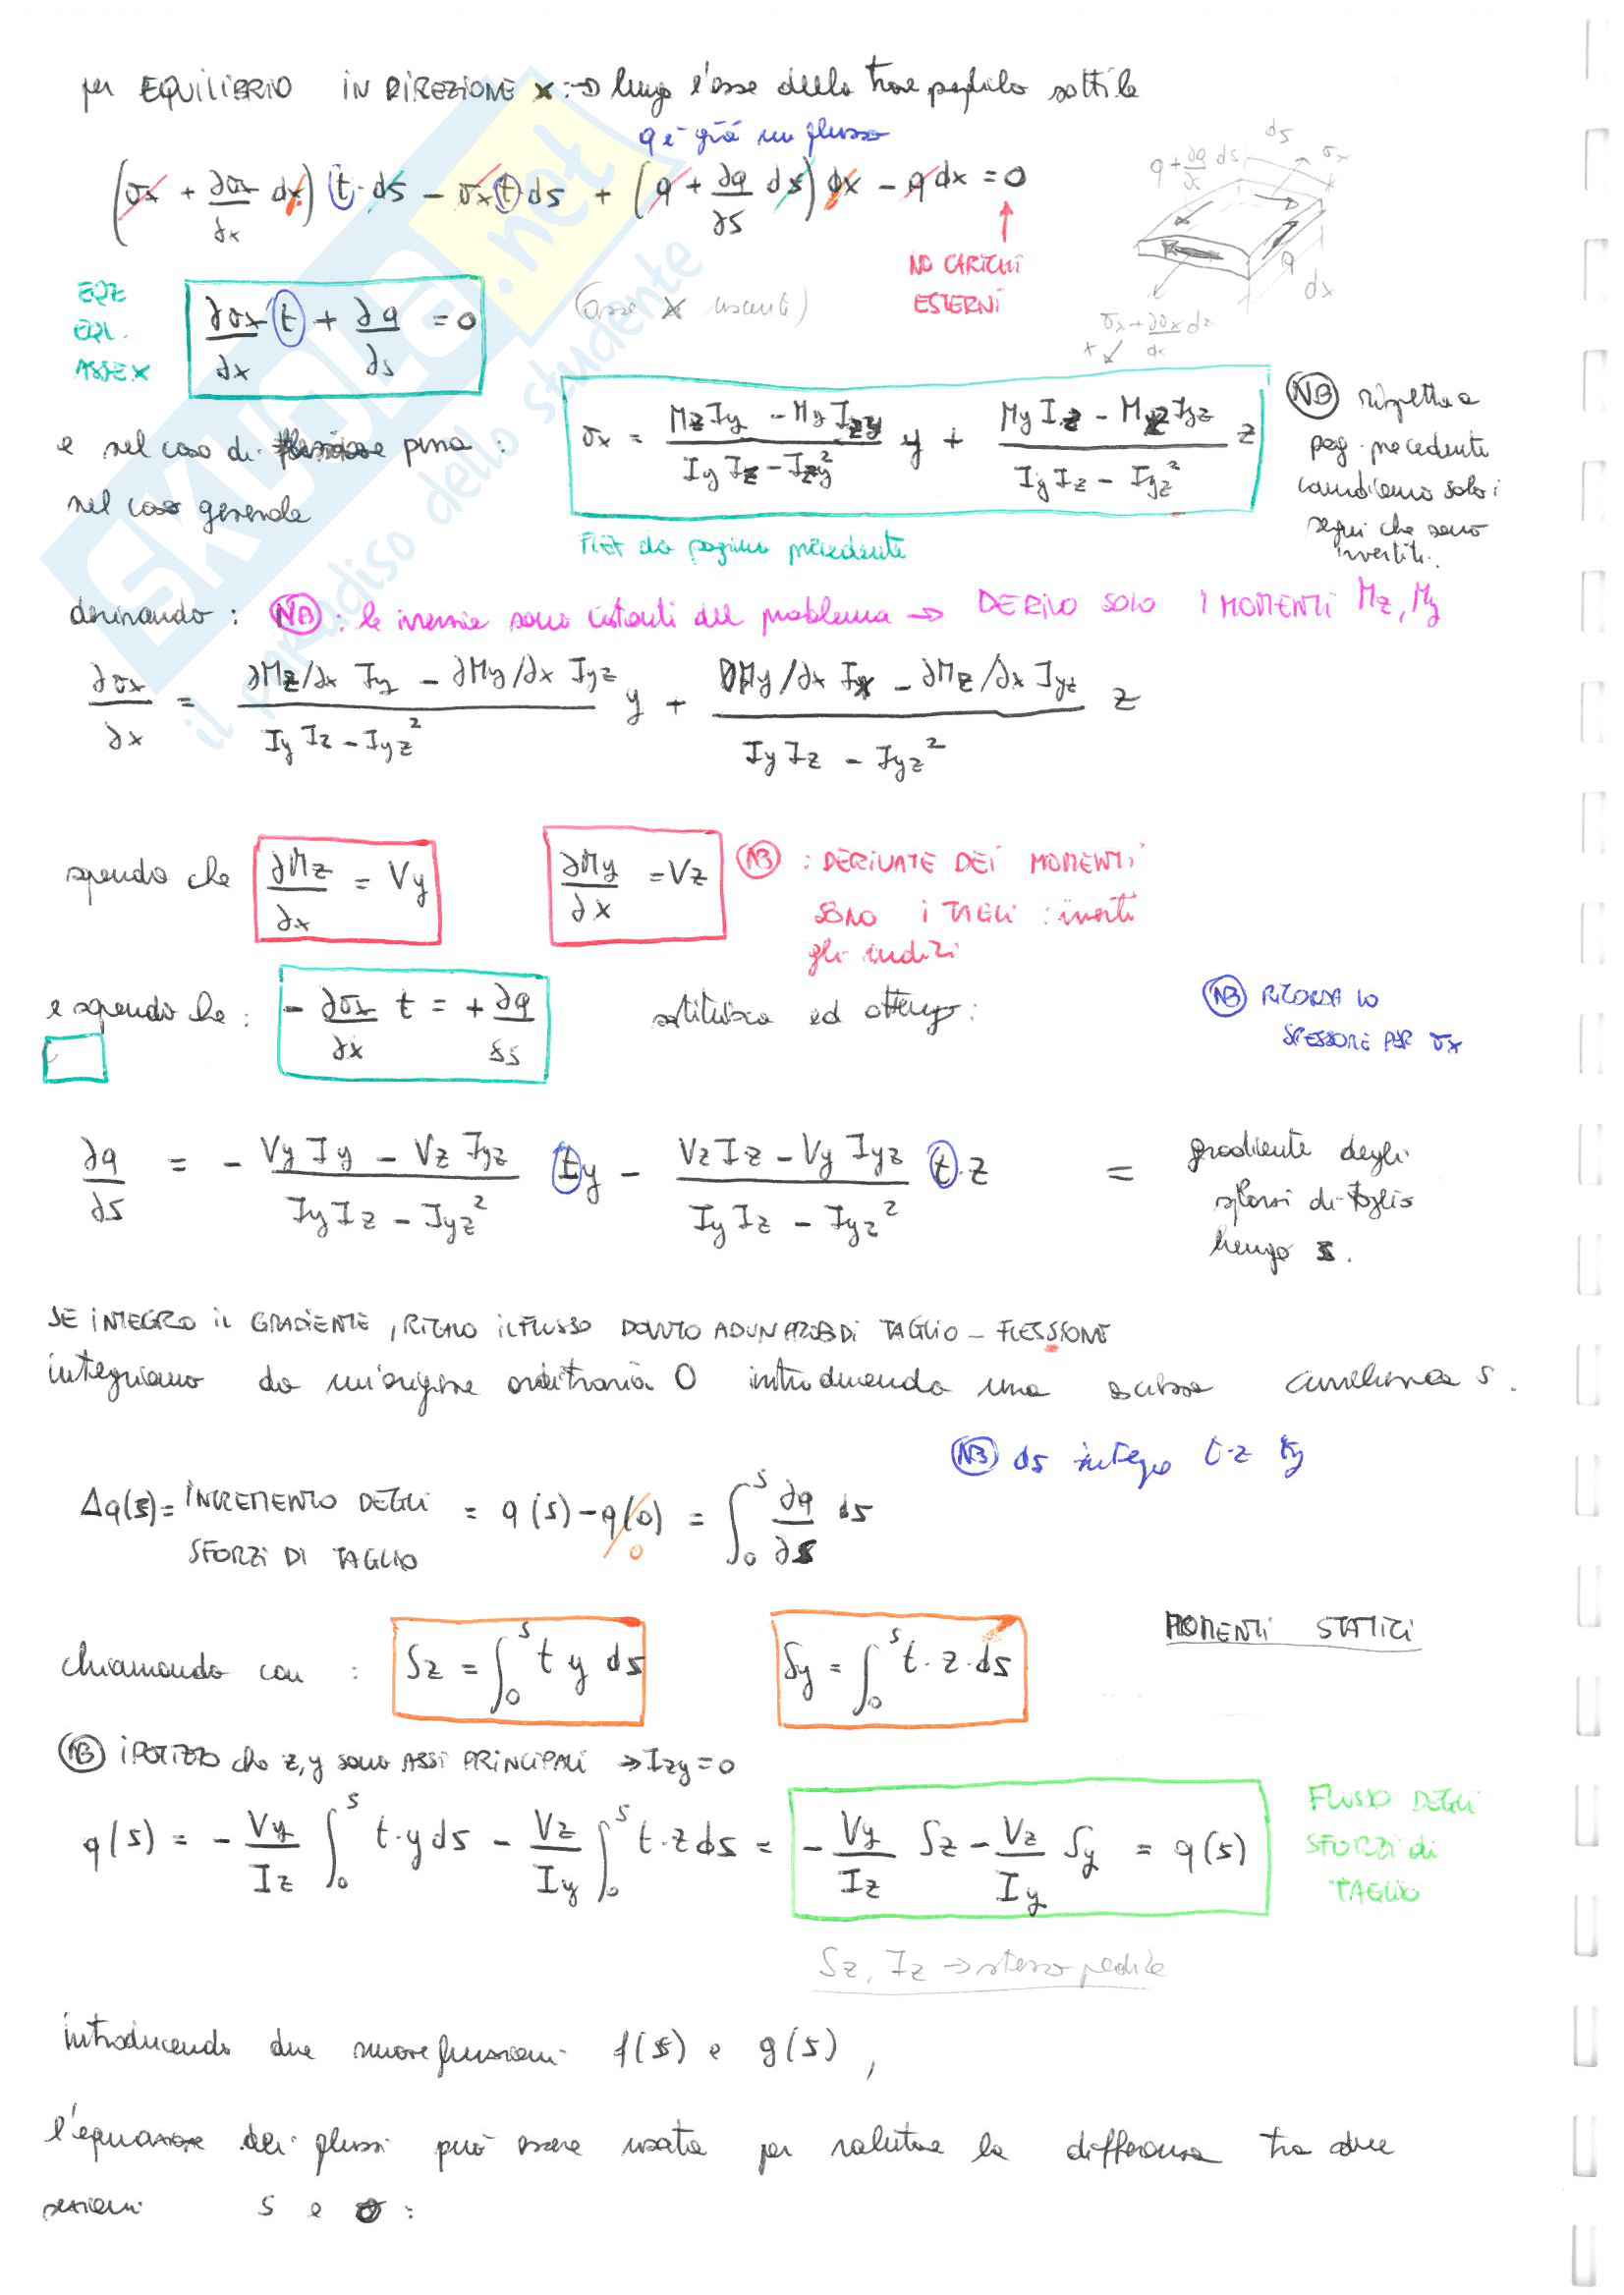 per EQUILIBRIO IN DIREZIONE x :→ lungo l'asse della trave profilo sottile
q è già un flusso
(σx + ∂σx/∂x dx) t·ds - σx t ds + (q + ∂q/∂s ds) dx - q dx = 0
q + ∂q/∂s ds
ds
σx
q
dx
σx + ∂σx/∂x dx
x
NO CARICHI
ESTERNI
(asse x uscenti)
EQZ
EQL.
ASSE X
∂σx/∂x t + ∂q/∂s = 0
e nel caso di flessione pura :
nel caso generale
σx = (Mz Iy - My Izy)/(Iy Iz - Izy²) y + (My Iz - Mz Iyz)/(Iy Iz - Iyz²) z
NB rispetto a
pag. precedente
cambiano solo i
segni che sono
invertiti.
da pagina precedente
derivando : NB : le inerzie sono costanti del problema → DERIVO SOLO I MOMENTI Mz, My
∂σx/∂x = (∂Mz/∂x Iy - ∂My/∂x Iyz)/(Iy Iz - Iyz²) y + (∂My/∂x - ∂Mz/∂x Iyz)/(Iy Iz - Iyz²) z
sapendo che ∂Mz/∂x = Vy ∂My/∂x = Vz NB : DERIVATE DEI MOMENTI
SONO I TAGLI : inverti
gli indizi
e sapendo che : - ∂σx/∂x t = + ∂q/∂s sostituisco ed ottengo :
NB RICORDA LO
SPESSORE PER σx
∂q/∂s = - (Vy Iy - Vz Iyz)/(Iy Iz - Iyz²) t y - (Vz Iz - Vy Iyz)/(Iy Iz - Iyz²) t·z = gradiente degli
sforzi di taglio
lungo s.
SE INTEGRO IL GRADIENTE, RICAVO IL FLUSSO DOVUTO AD UN DI TAGLIO - FLESSIONE
integriamo da un'origine arbitraria O introducendo una ascissa curvilinea s.
NB ds integro t·z ty
Δq(s) = INCREMENTO DEGLI
SFORZI DI TAGLIO = q(s) - q(0) = ∫₀ˢ ∂q/∂s ds
0
chiamando con : Sz = ∫₀ˢ t y ds Sy = ∫₀ˢ t·z·ds MOMENTI STATICI
NB IPOTIZZO che z, y sono ASSI PRINCIPALI → Izy = 0
q(s) = - Vy/Iz ∫₀ˢ t·y ds - Vz/Iy ∫₀ˢ t·z ds = - Vy/Iz Sz - Vz/Iy Sy = q(s)
FLUSSO DEGLI
SFORZI di
TAGLIO
Sz, Iz → stesso pedice
introducendo due nuove funzioni f(s) e g(s),
l'equazione dei flussi può essere usata per valutare la differenza tra due
sezioni s e 0 :
skuola.net
il paradiso dello studente